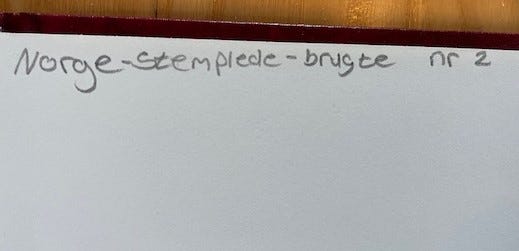 Norge-stemplede-brugte nr 2